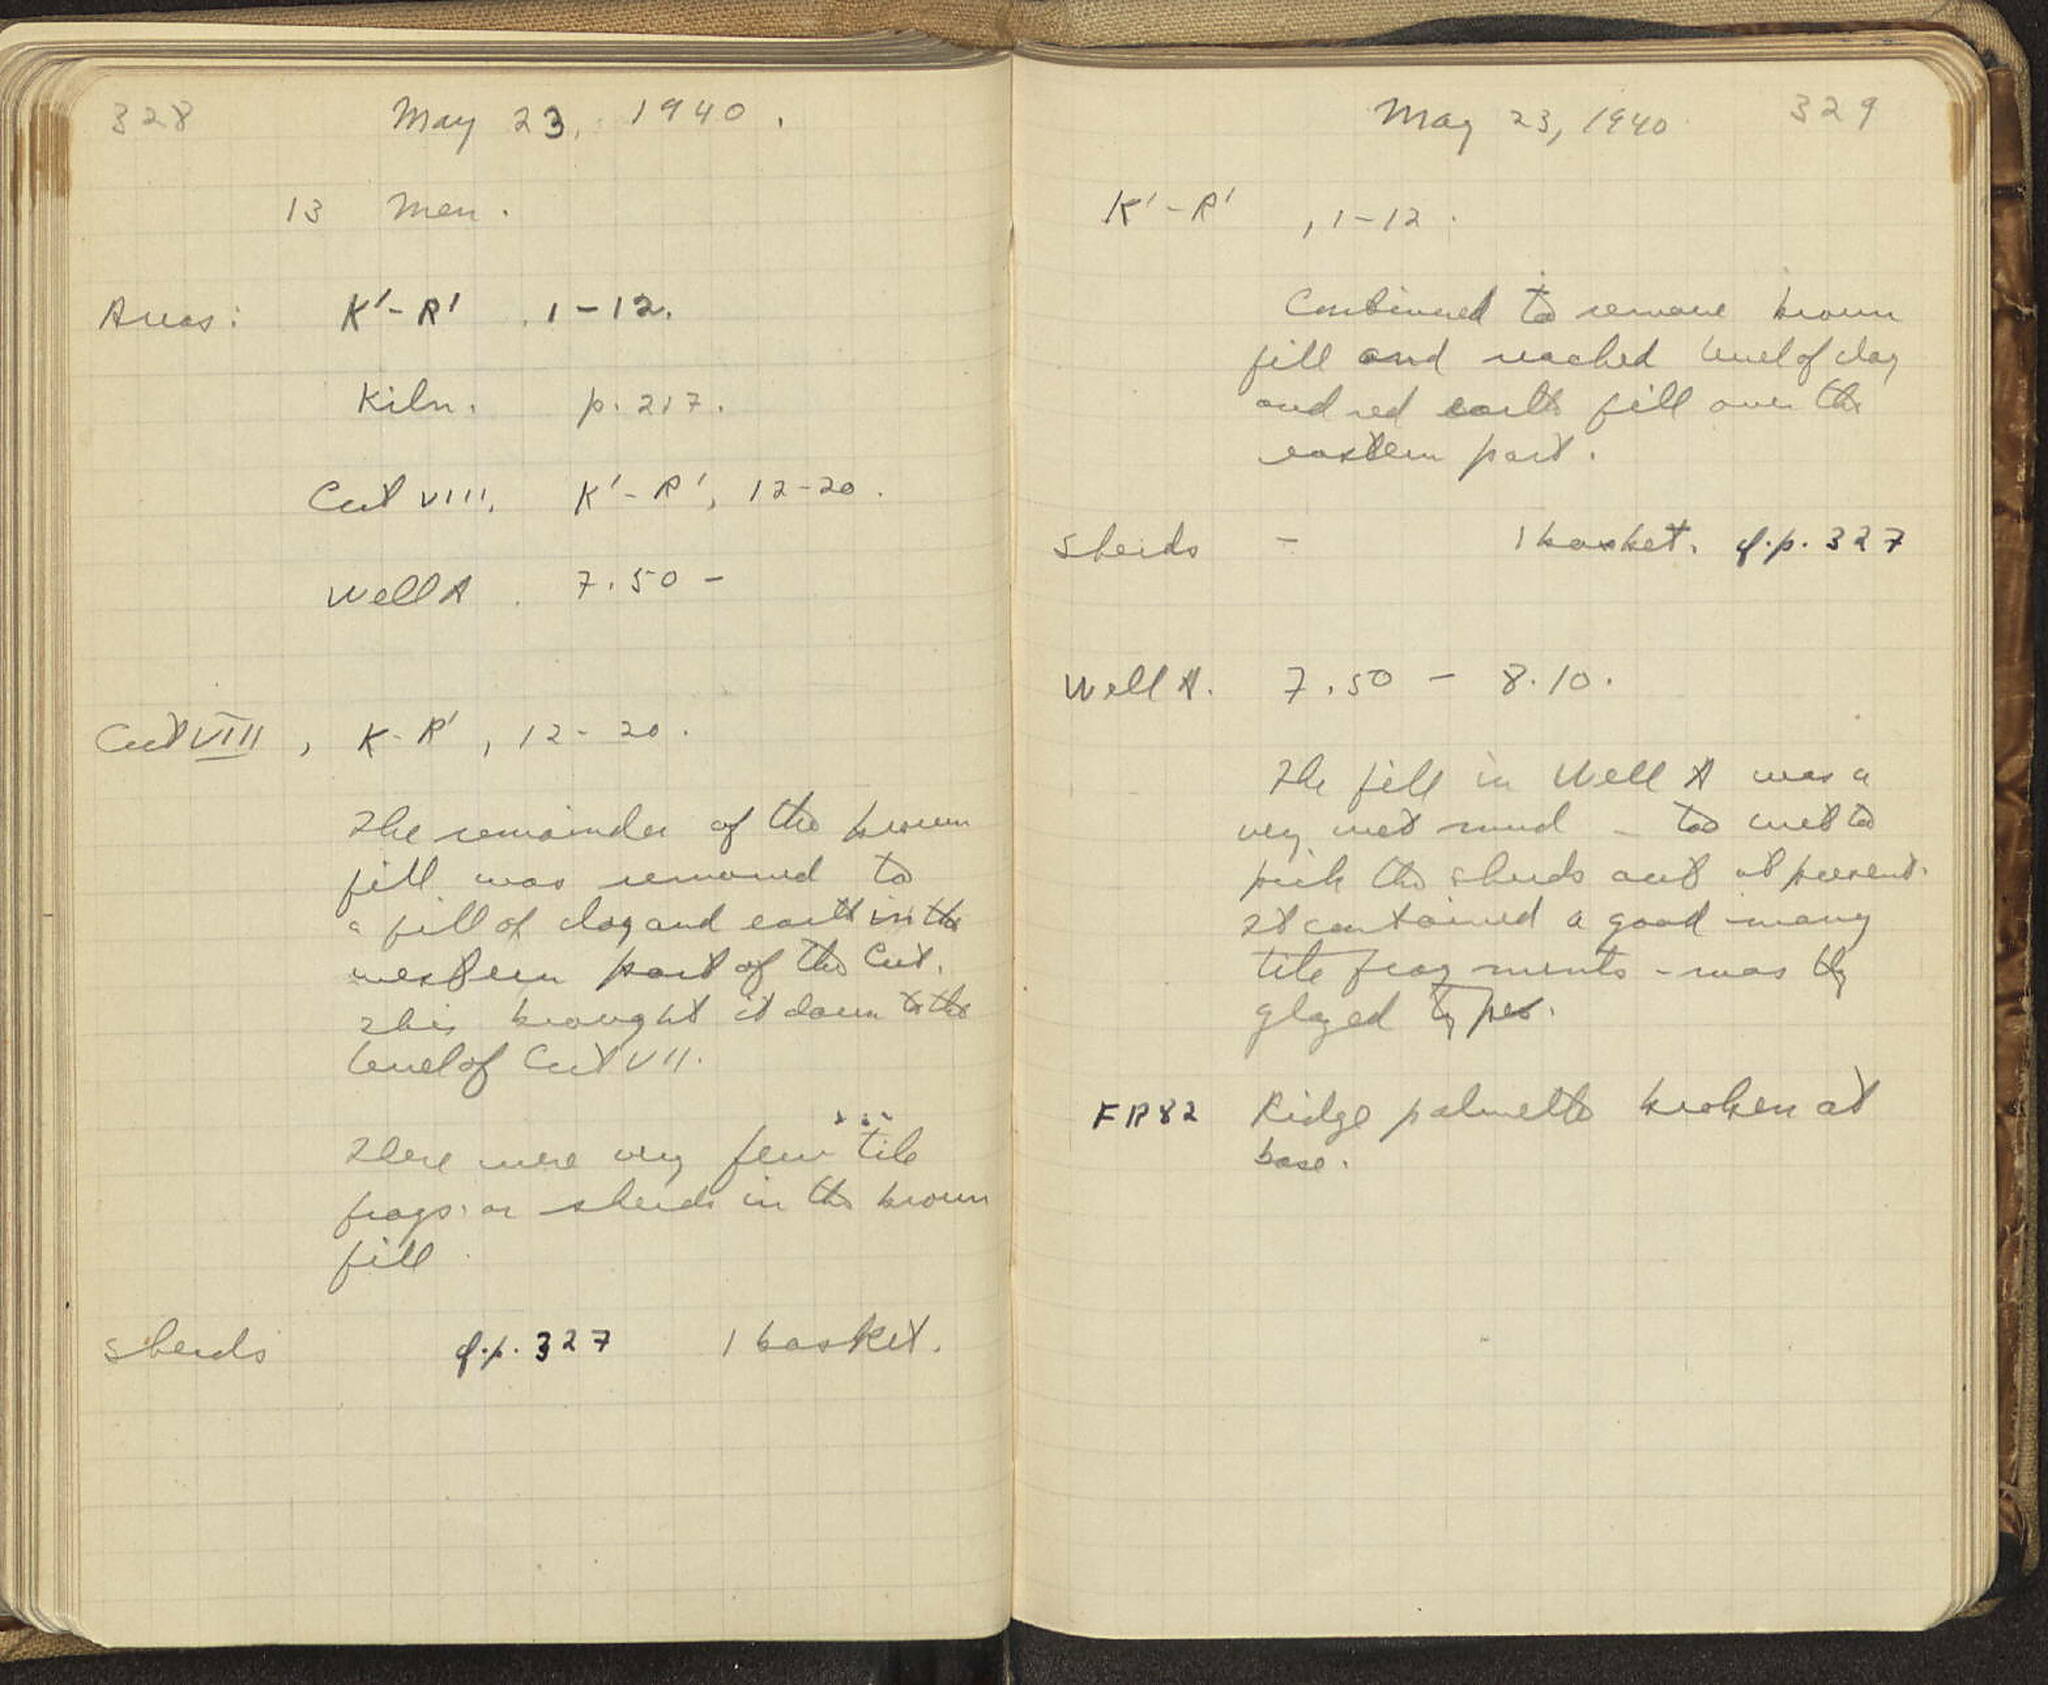 328
May 23, 1940.
13 Men.
Areas: K'-R' . 1-12.
Kiln. p. 217.
Cut VIII, K'-R', 12-20.
Well A . 7.50 -
Cut VIII, K-R', 12-20.
The remainder of the brown
fill was removed to
a fill of clay and earth in the
western part of the Cut.
This brought it down to the
level of Cut VII.
There were very few tile
frags. or sherds in the brown
fill.
Sherds cf. p. 327 1 basket.
May 23, 1940 329
K'-R' , 1-12.
Continued to remove brown
fill and reached level of clay
and red earth fill over the
eastern part.
Sherds - 1 basket. cf. p. 327
Well A. 7.50 - 8.10.
The fill in Well A was a
very wet mud - too wet to
pick the sherds out at present.
It contained a good many
tile fragments -
glazed types.
FR82 Ridge palmette broken at
base.